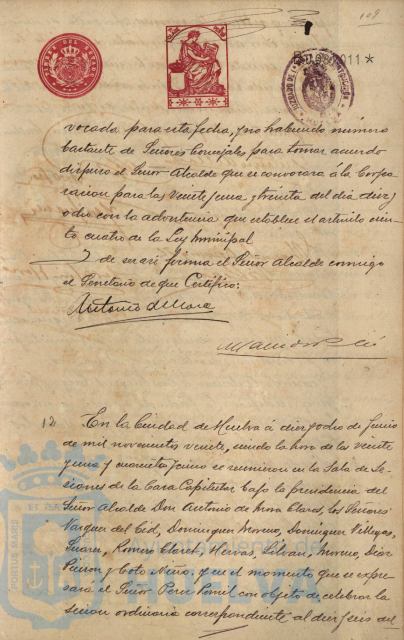 109
B.0.000.011*
vocada para esta fecha, y no habiendo número
bastante de Señores Concejales para tomar acuerdo
dispuso el Señor Alcalde que se convocara á la Corpo
racion para las veinte y una y treinta del dia diez y
ocho con la advertencia que establece el artículo cien-
to cuatro de la Ley Municipal
Y de su ase firma el Señor Alcalde conmigo
el Secretario de que Certifico:
Antonio de Mora
12
En la Ciudad de Huelva á diez y ocho de Junio
de mil novecientos veinte, siendo la hora de las veinte
y una y cuarenta y cinco se reunieron en la Sala de Se-
siones de la Casa Capitular bajo la presidencia del
Señor Alcalde Don Antonio de Mora Claros, los Señores
Vazquez del Cid, Dominguez Moreno, Dominguez Villegas,
Suarez, Romero Claret, Hervas, Lillvan, Moreno, Diaz
Pinzon y Coto Niño, y en el momento que se expre-
sará el Señor Perez Comil con objeto de celebrar la
sesion ordinaria correspondiente al diez y seis del
PORTUS MARIS
Ayuntamiento de